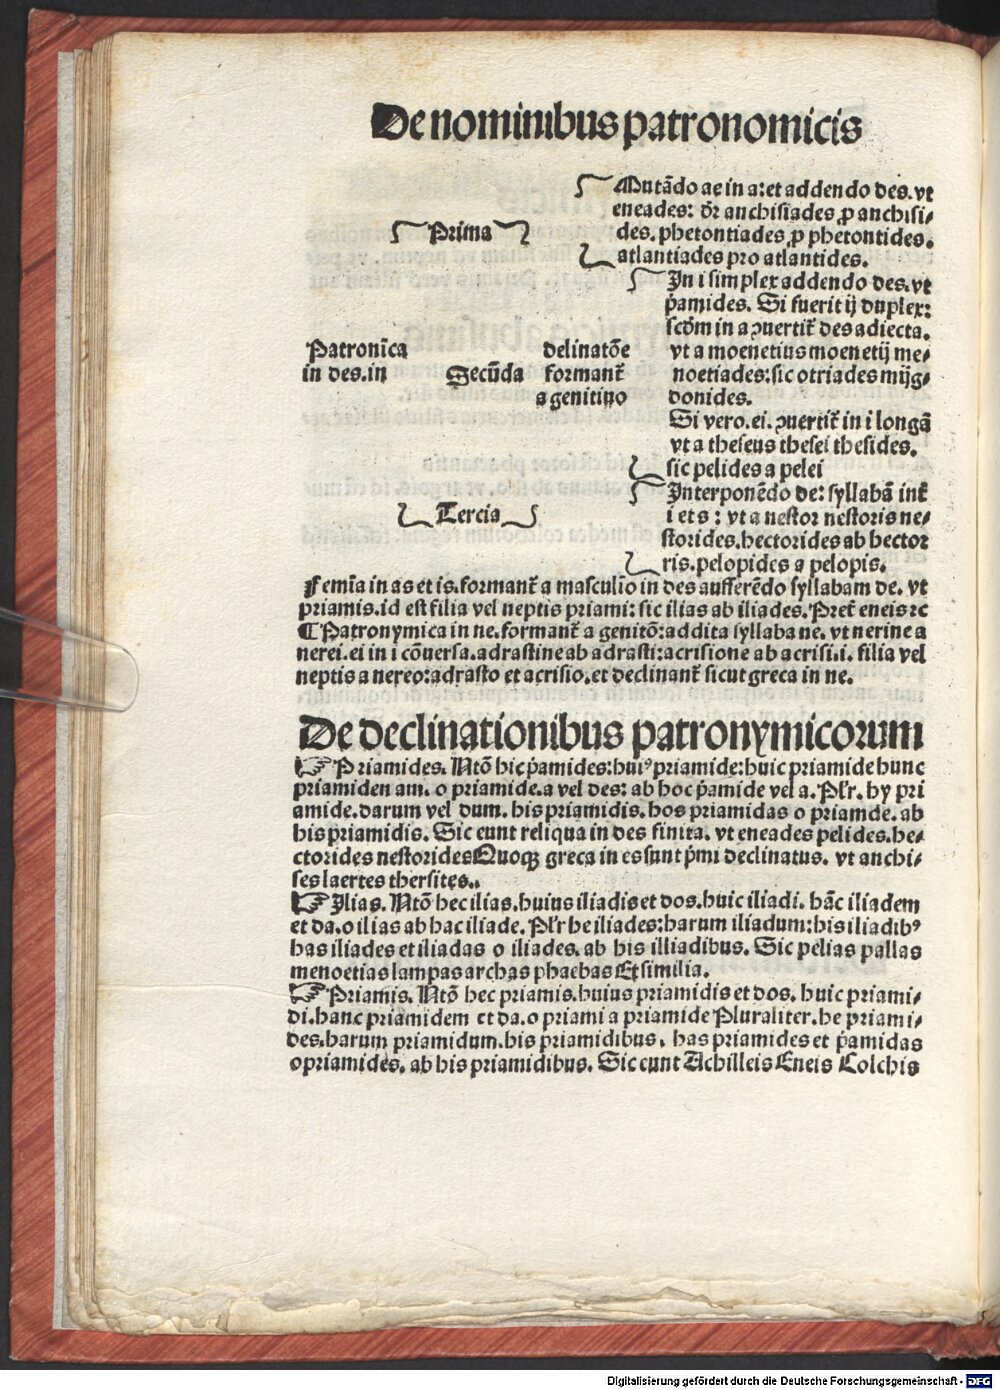 De nominibus patronomicis
Mutādo ae in a: et addendo des. vt
eneades: dr̄ anchisiades ꝓ anchisi⸗
Prima
des. phetontiades ꝓ phetontides.
atlantiades pro atlantides.
In i simplex addendo des. vt
p̄amides. Si fuerit ij duplex:
scd̄m in a ꝯuertit̄ des adiecta.
Patronīca delinatōe vt a moenetius moenetij me⸗
in des. in Secūda formant̄ noetiades: sic otriades mijg⸗
a genitiuo donides.
Si vero. ei. ꝯuertit̄ in i longā
vt a theseus thesei thesides.
sic pelides a pelei
Interponēdo de: syllabā int̄
Tercia i et s: vt a nestor nestoris ne⸗
storides. hectorides ab hector
ris. pelopides a pelopis.
Femīa in as et is. formant̄ a masculīo in des aufferēdo syllabam de. vt
priamis. id est filia vel neptis priami: sic ilias ab iliades. Pret̄ eneis ⁊c
¶ Patronymica in ne. formant̄ a genitō: addita syllaba ne. vt nerine a
nerei. ei in i cōuersa. adrastine ab adrasti: acrisione ab acrisi. i. filia vel
neptis a nereo: adrasto et acrisio. et declinant̄ sicut greca in ne.
De declinationibus patronymicorum
☞ Priamides. Ntō hic p̄amides: huiꝰ priamide: huic priamide hunc
priamiden am. o priamide. a vel des: ab hoc p̄amide vel a. Pl'r. hy pri
amide. darum vel dum. his priamidis. hos priamidas o priamde. ab
his priamidis. Sic eunt reliqua in des finita. vt eneades pelides. he⸗
ctorides nestorides Quoqꝫ greca in es sunt p̄mi declinatus. vt anchi⸗
ses laertes thersites..
☞ Ilias. Ntō hec ilias. huius iliadis et dos. huic iliadi. hāc iliadem
et da. o ilias ab hac iliade. Pl'r he iliades: harum iliadum: his iliadibꝰ
has iliades et iliadas o iliades. ab his illiadibus. Sic pelias pallas
menoetias lampas archas phaebas Et similia.
☞ Priamis. Ntō hec priamis. huius priamidis et dos. huic priami⸗
di. hanc priamidem et da. o priami a priamide Pluraliter. he priami⸗
des. harum priamidum. his priamidibus. has priamides et p̄amidas
o priamides. ab his priamidibus. Sic eunt Achilleis Eneis Colchis
Digitalisierung gefördert durch die Deutsche Forschungsgemeinschaft - DFG